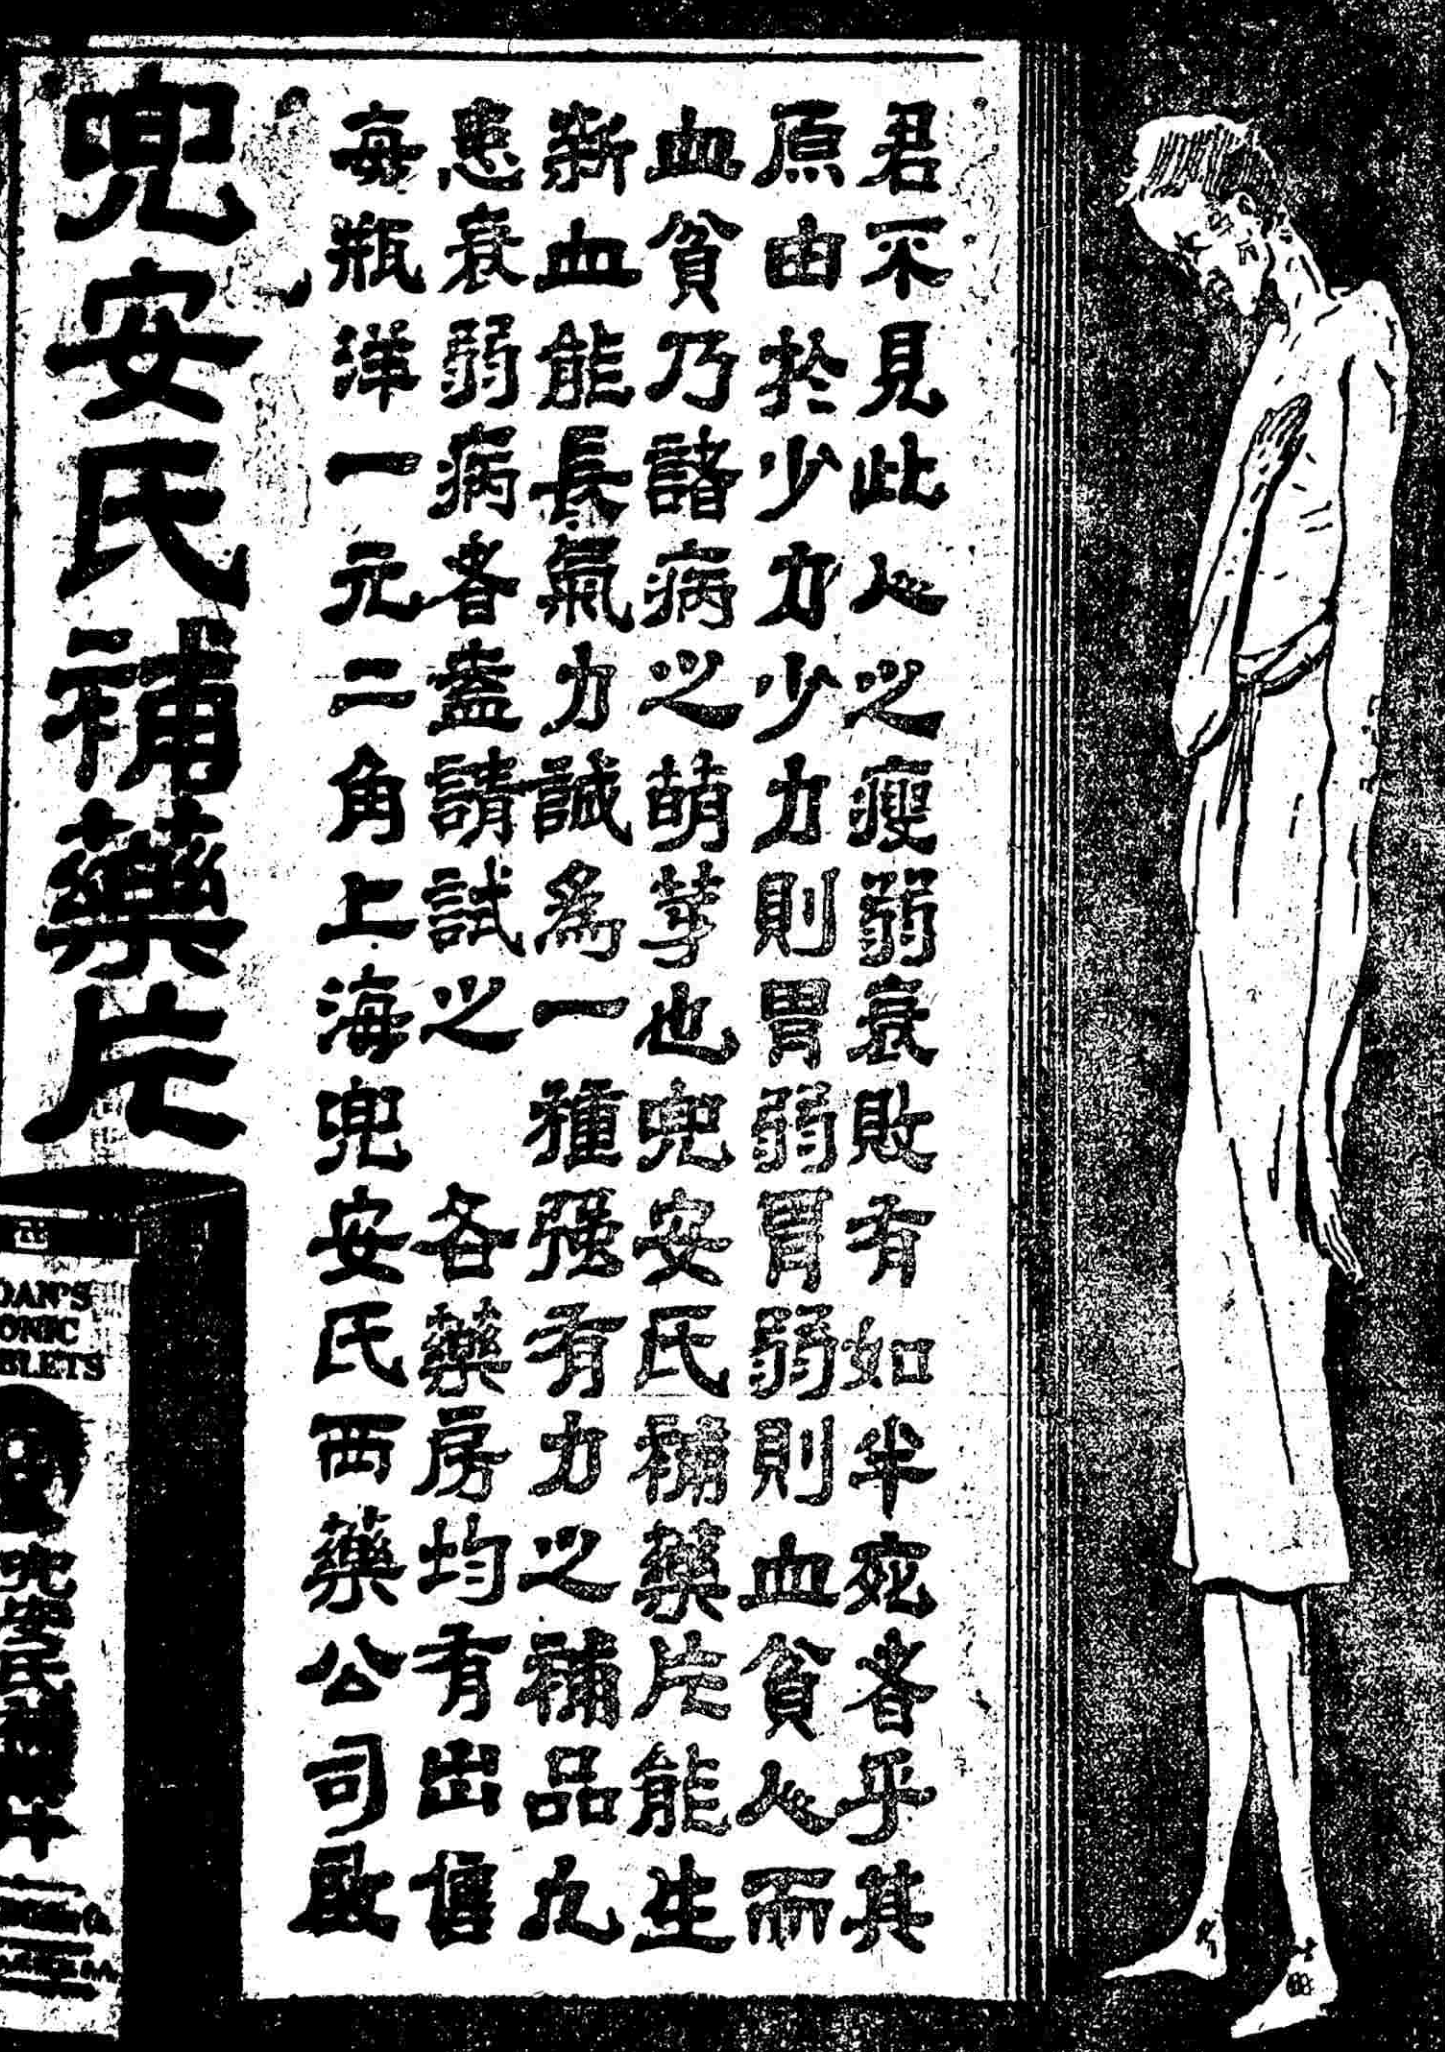 君不見此人之瘦弱衰敗有如半死者乎其
原由於少力少力則胃弱胃弱則血貧人而
血貧乃諸病之萌芽也兜安氏補藥片能生
新血能長氣力誠為一種强有力之補品凡
患衰弱病者盍請試之 各藥房均有出售
每瓶洋一元二角上海兜安氏西藥公司啟
兜安氏補藥片
OAN'S
ONIC
BLETS
兜安氏補
片